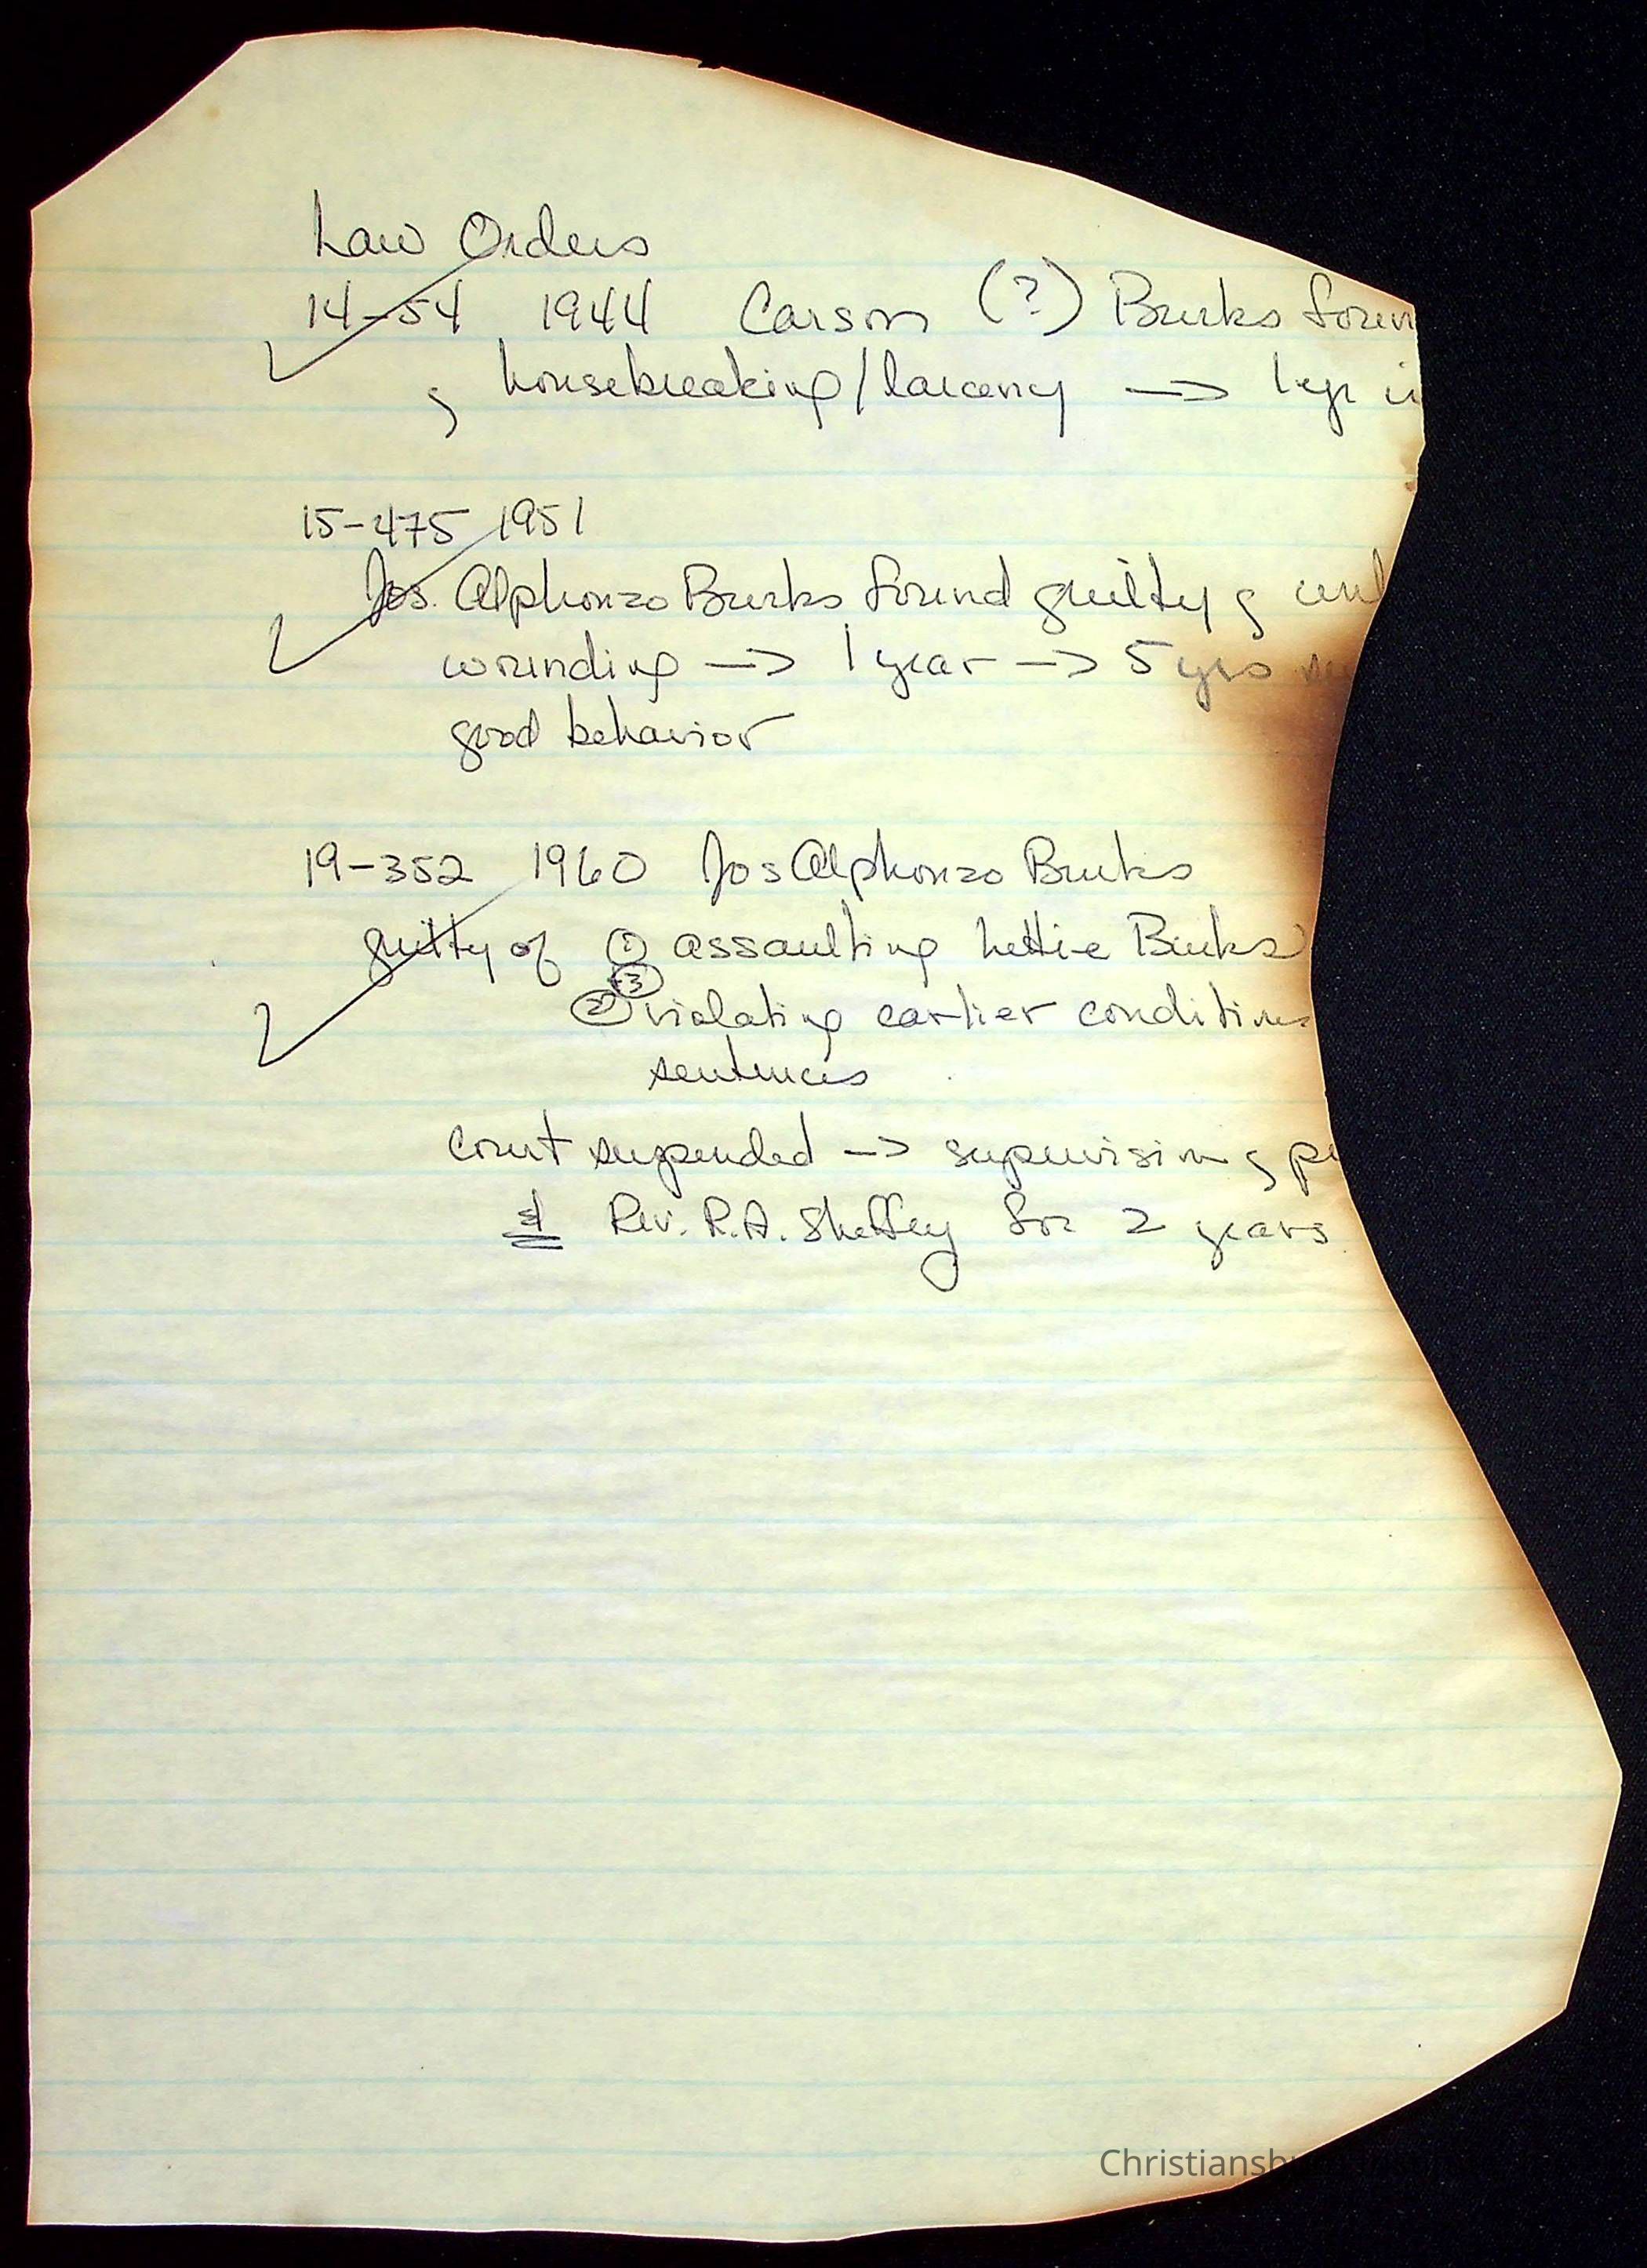 Law Orders
14-54 1944 Carson (?) Burks foun
of housebreaking/larceny → 1 yr i
15-475 1951
Jos. Alphonzo Burks found guilty of unl
wounding → 1 year → 5 yrs
good behavior
19-352 1960 Jos Alphonzo Burks
guilty of ① assaulting Hettie Burks
+③
② violating earlier conditions
sentences
Court suspended → supervision of p
& Rev. R.A. Sheffey for 2 years
Christiansb